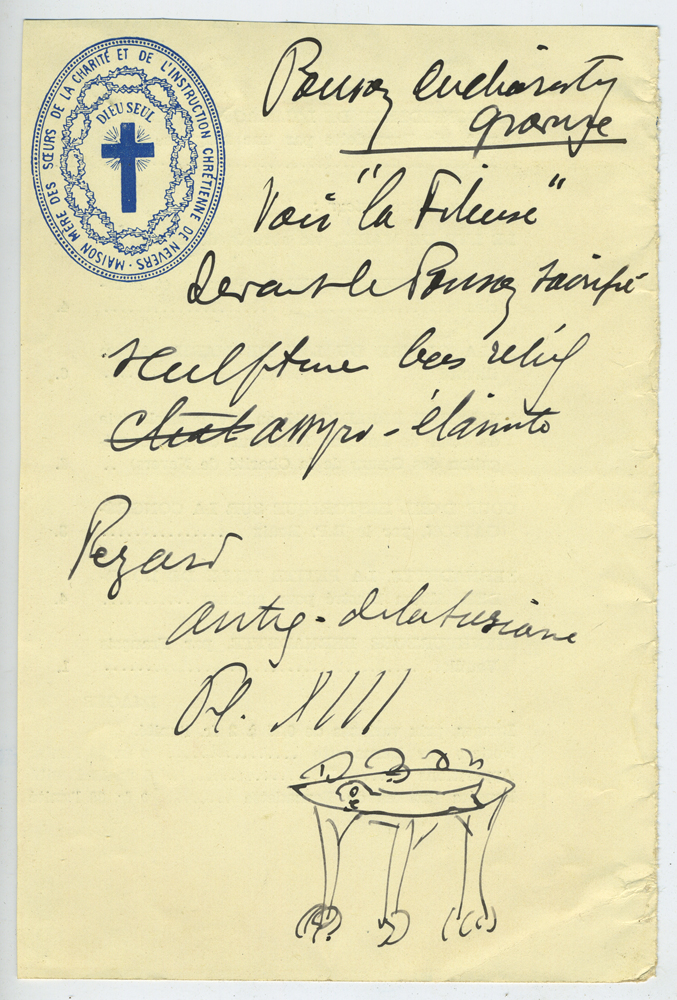 MAISON MÈRE DES SŒURS DE LA CHARITÉ ET DE L'INSTRUCTION CHRÉTIENNE DE NEVERS ·
DIEU SEUL
Poisson eucharisty
Voir "la Fileuse"
devant le Poisson sacrifié
sculpture bas relief
assyro-élamite
Pezard
antiq. de la Susiane
Pl. XIIII